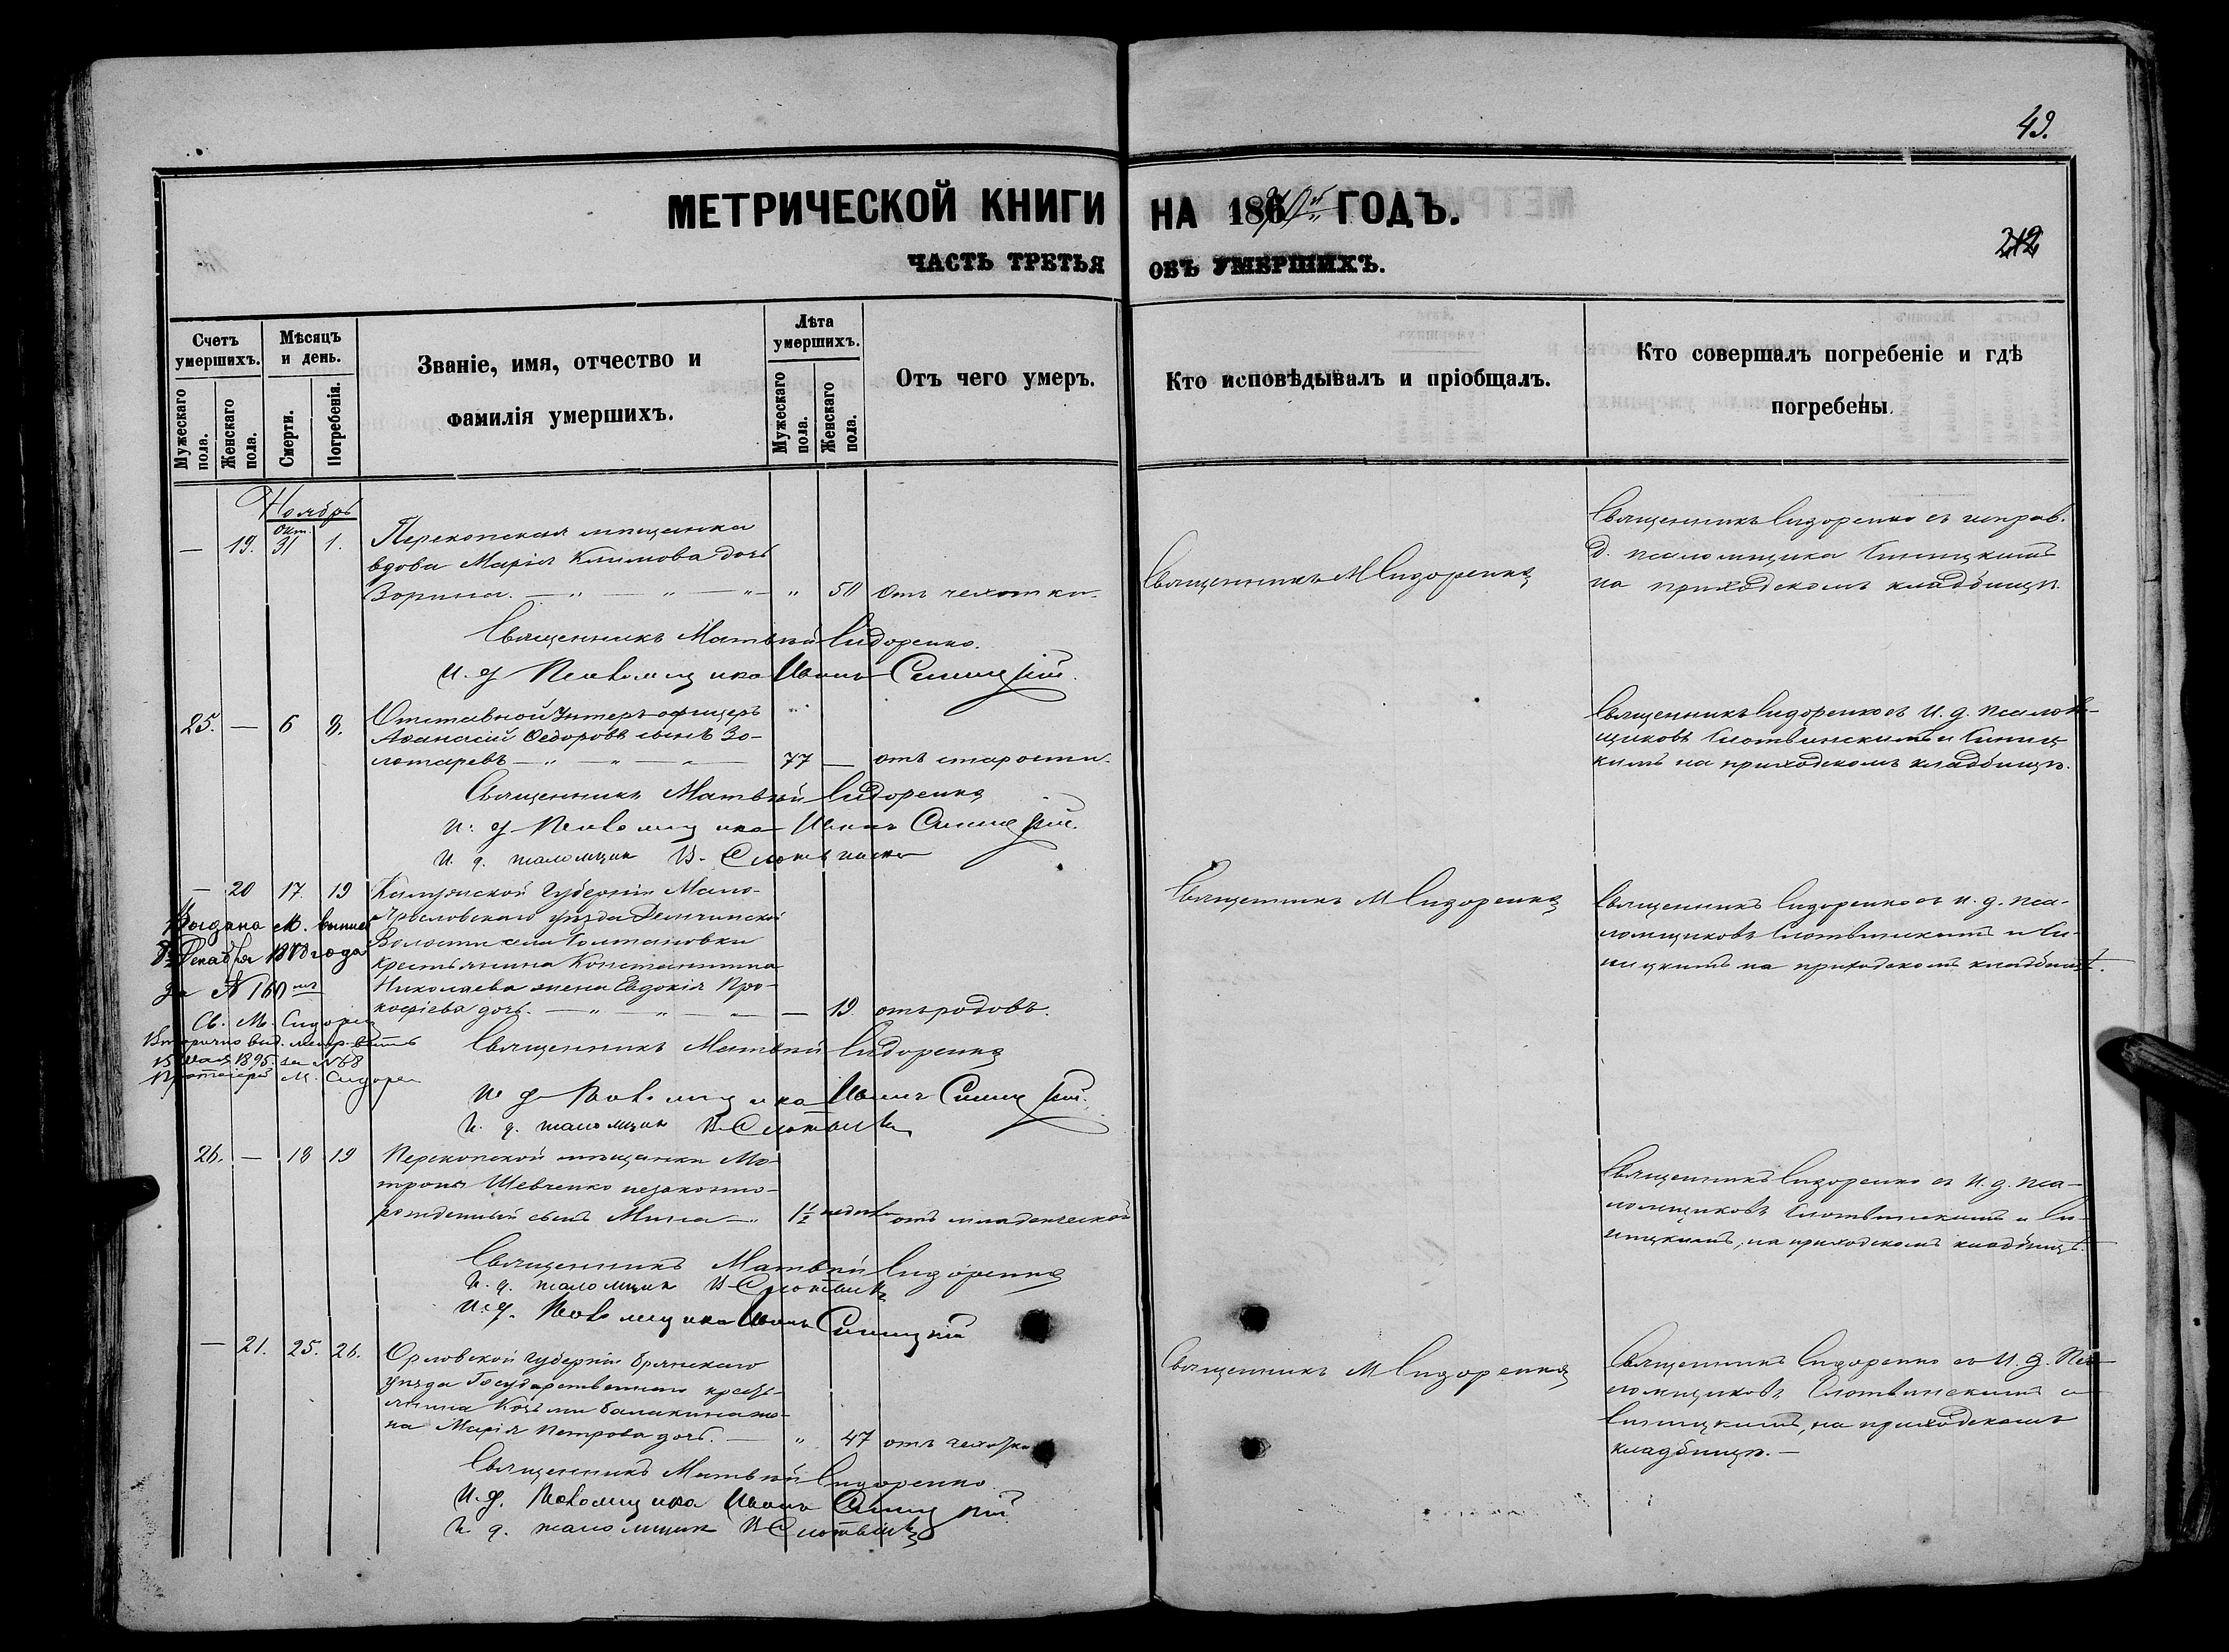 49.
МЕТРИЧЕСКОЙ КНИГИ НА 1870й ГОДЪ.
ЧАСТЬ ТРЕТЬЯ ОБЪ УМЕРШИХЪ.
212
Счетъ умершихъ.
Мужескаго пола.
Женскаго пола.
Мѣсяцъ и день.
Смерти.
Погребенія.
Званіе, имя, отчество и
фамилія умершихъ.
Лѣта умершихъ.
Мужескаго пола.
Женскаго пола.
Отъ чего умеръ.
Кто исповѣдывалъ и пріобщалъ.
Кто совершалъ погребеніе и гдѣ
погребены.
Ноябрь
— 19. Окт. 31 1. Перекопская мѣщанка
вдова Марія Климова дочь
Зорина. — " — " — " — " 50 отъ чахотки.
Священникъ М Сидоренко
Священникъ Сидоренко съ исправ.
д. псаломщика Синицкимъ
на приходскомъ кладбищѣ.
Священникъ Матвѣй Сидоренко.
И. д Псаломщика Иванъ Синицкій.
25. — 6 8. Отставной Унтеръ-офицеръ
Аѳанасій Ѳедоровъ сынъ Зо-
лотаревъ — " — " — " — 77 — отъ старости.
Священникъ Сидоренко съ И. д. псалом-
щиковъ Слотвинскимъ и Синиц
кимъ на приходскомъ кладбищѣ.
Священникъ Матвѣй Сидоренко
И. д Псаломщика Иванъ Синицкій.
И. д. псаломщик В. Слотвинск
— 20 17. 19 Калужской Губерніи Мало-
Ярославскаго уѣзда
Волости села
крестьянина Константина
Николаева жена Евдокія Про-
кофіева дочь. — " — " — " — 19 отъ родовъ.
Выдана М. выпись
8 Декабря 1870 года
за N 160мъ
Св. М. Сидорен
Вторично выд. метр.
Мая 1895 за N 68
Протоіерей М. Сидорен
Священникъ М Сидоренко
Священникъ Сидоренко съ и. д. пса-
ломщиковъ Слотвинскимъ и Си-
ницкимъ на приходскомъ кладбищѣ.
Священникъ Матвѣй Сидоренко
И. д Псаломщика Иванъ Синицкій.
И. д. псаломщик В Слотвинск
26. — 18 19 Перекопской мѣщанки Мо-
троны Шевченко незаконно-
рожденный сынъ Мина — " 1½ недѣли отъ младенческой
Священникъ Сидоренко съ И. д. пса-
ломщиковъ Слотвинскимъ и Си-
ницкимъ, на приходскомъ кладбищѣ.
Священникъ Матвѣй Сидоренко
И. д. псаломщик В Слотвинск
И. д. Псаломщика Иванъ Синицкій
— 21. 25. 26. Орловской Губерніи Брянскаго
уѣзда Государственнаго кресть-
янина Козьмы Балакина же-
на Марія Петрова дочь. — " 47 отъ чахотки
Священникъ М Сидоренко
Священникъ Сидоренко съ И. д. Пса-
ломщиковъ Слотвинскимъ и
Синицкимъ, на приходскомъ
кладбищѣ. —
Священникъ Матвѣй Сидоренко
И. д. Псаломщика Иванъ Синицкій
И. д. псаломщик В Слотвинск